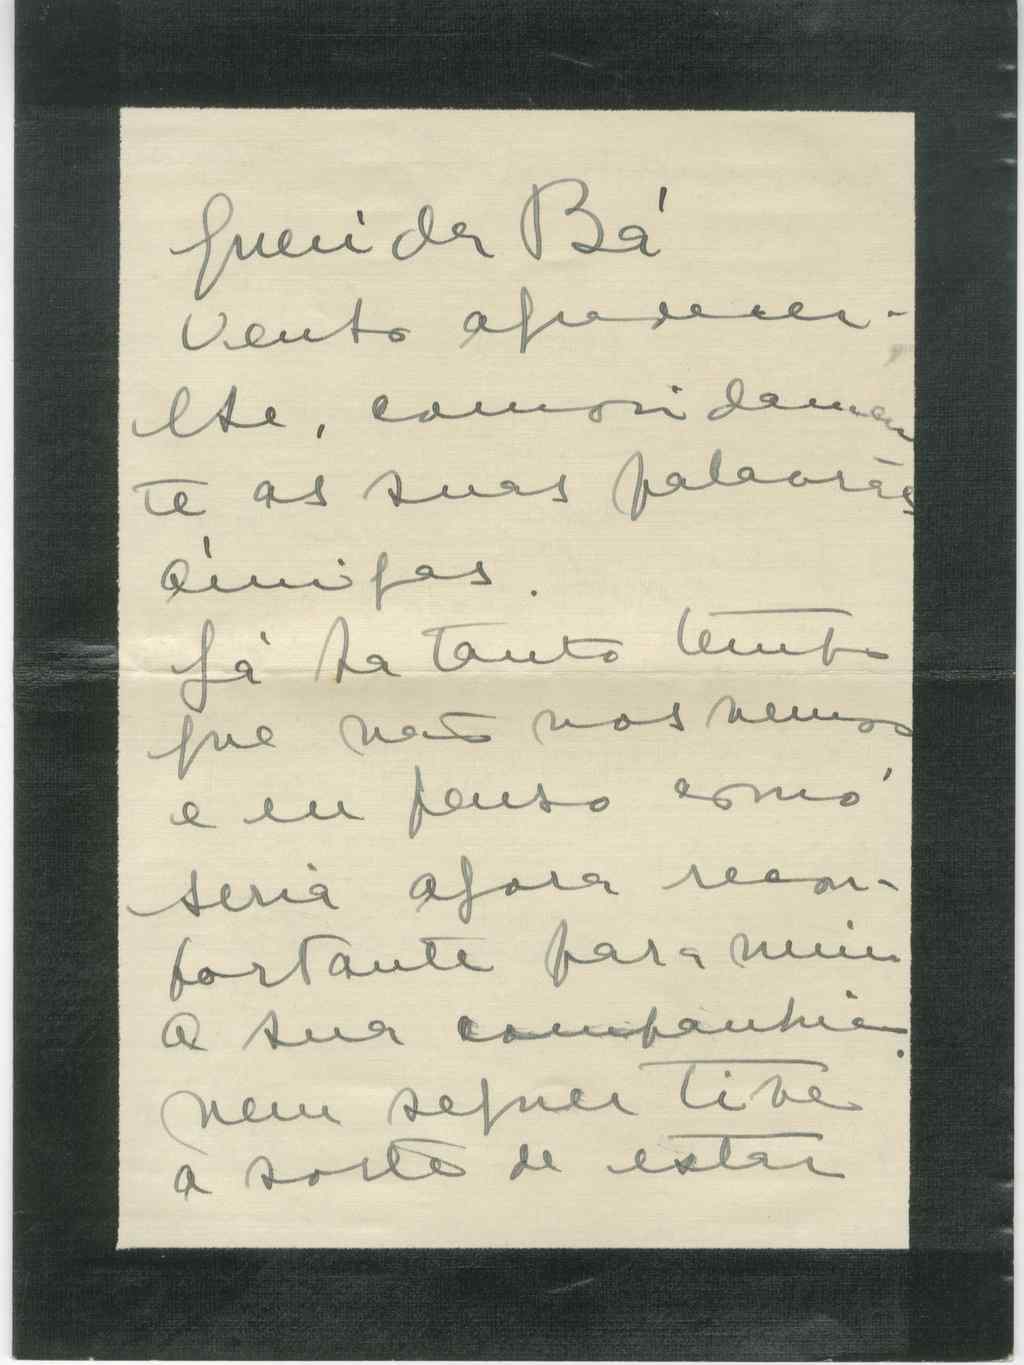 Querida Bá
Venho agradecer-
lhe, comovidamen
te as suas palavras
àmigas.
Já ha tanto tempo
que não nos vemos
e eu penso como
seria agora recon-
fortante para mim
a sua companhia.
nem sequer tive
a sorte de estar